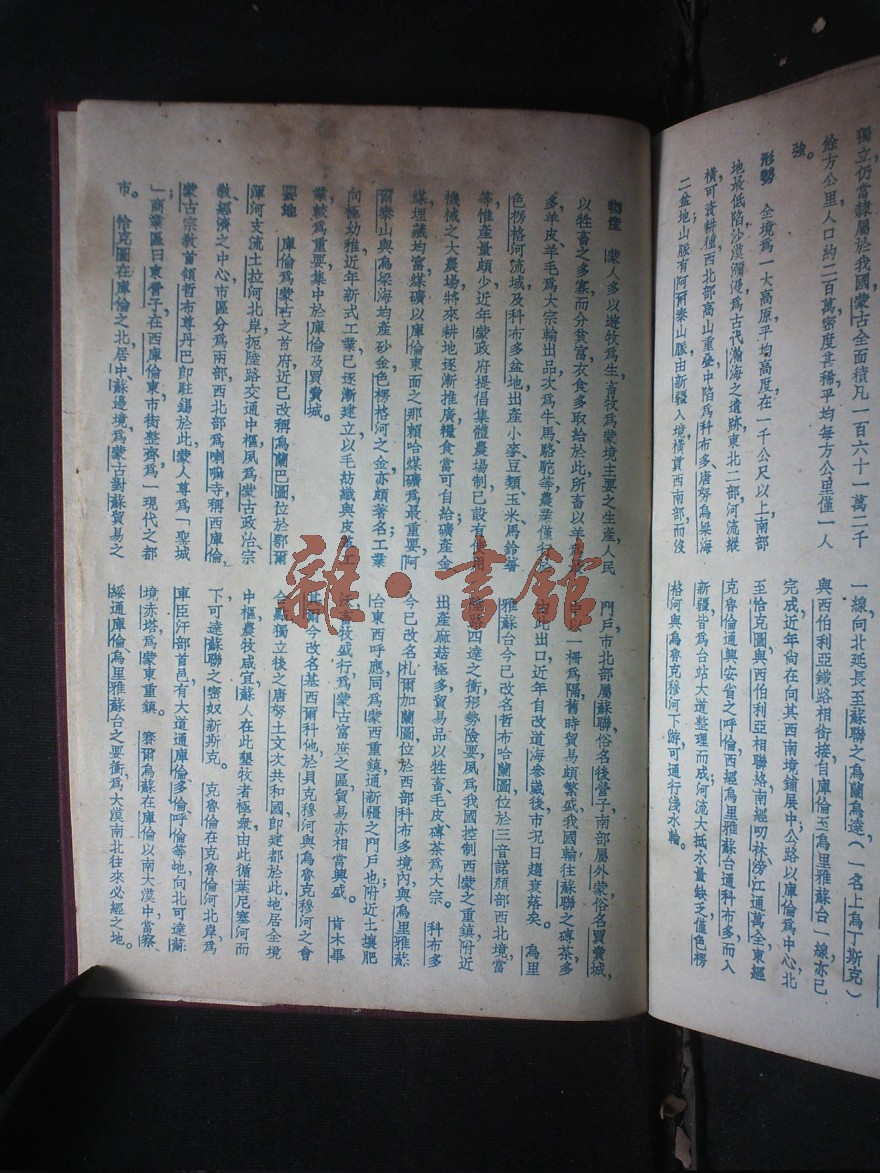 獨立,仍當隸屬於我國。蒙古全面積凡一百六十一萬二千
餘方公里,人口約二百萬,密度甚稀,平均每方公里僅一人
強。
形勢 全境爲一大高原,平均高度在一千公尺以上,南部
地最低陷,沙漠瀰漫,爲古代瀚海之遺跡,東北二部,河流縱
橫,可資耕種;西北部高山重疊,中陷爲科布多、唐努烏梁海
二盆地;山脈有阿爾泰山脈,由新疆入境,橫貫西南部,而後
一線,向北延長至蘇聯之烏蘭烏達(一名上烏丁斯克)
與西伯利亞鐵路相銜接,自庫倫至烏里雅蘇台一線亦已
完成,近年尙在向其西南境鋪展中;公路以庫倫爲中心,北
至恰克圖與西伯利亞相聯絡,南經叨林、滂江通萬全,東經
克魯倫通興安省之呼倫,西經烏里雅蘇台通科布多而入
新疆,皆爲台站大道整理而成;河流大抵水量缺乏,僅色楞
格河與烏魯克穆河下游可通行淺水輪。
物產 蒙人多以遊牧爲生,畜牧爲蒙境主要之生產,人民
以牲畜之多寡而分貧富,衣食多取給於此,所畜以羊
多,羊皮、羊毛爲大宗輸出品,次爲牛、馬、駱駝等;農業僅
色楞格河流域及科布多盆地,出產小麥、豆類、玉米、馬鈴薯
等,惟產量頗少,近年蒙政府提倡集體農場制,已設有
機械之大農場,將來耕地逐漸推廣,糧食當可自給;礦產金
煤埋藏均富,煤礦以庫倫東面之那賴哈煤礦爲最重要,阿
爾泰山與烏梁海均產砂金,色楞格河之金亦頗著名;工業
向極幼稚,近年新式工業已逐漸建立,以毛紡織與皮革工
業較爲重要,集中於庫倫及買賣城。
要地 庫倫爲蒙古之首府,近已改稱烏蘭巴圖,位於鄂爾
渾河支流土拉河北岸,扼陸路交通中樞,夙爲蒙古政治、宗
敎、經濟之中心,市區分爲兩部,西北部爲喇嘛寺,稱西庫倫,
蒙古宗敎首領哲布尊丹巴卽駐錫於此,蒙人尊爲「聖城
」,商業區曰東營子,在西庫倫東,市街整齊,爲一現代之都
市。 恰克圖在庫倫之北,居中、蘇邊境,爲蒙古對蘇貿易之
門戶,市北部屬蘇聯,俗名後營子,南部屬外蒙,俗名買賣城,
一柵爲隔,舊時貿易頗繁盛,我國輸往蘇聯之磚茶多
出口,近年自改道海參崴後,市況日趨衰落矣。 烏里
雅蘇台今已改名哲布哈蘭圖,位於三音諾顏部西北境,當
四達之衝,形勢險要,夙爲我國控制西蒙之重鎮,附近
出產麻菇極多,貿易品以牲畜、毛皮、磚茶爲大宗。 科布多
今已改名札爾加蘭圖,位於西部科布多境內,與烏里雅蘇
台東西呼應,同爲蒙西重鎮,通新疆之門戶也,附近土壤肥
牧盛行,爲蒙古富庶之區,貿易亦相當興盛。 肯木畢
其爾今改名基西爾科他,於貝克穆河與烏魯克穆河之會
合點,獨立後之唐努土文次共和國卽建都於此,地居全境
中樞,農牧咸宜,蘇人在此墾牧者極衆,由此循葉尼塞河而
下可達蘇聯之密奴新斯克。 克魯倫在克魯倫河北岸,爲
車臣汗部首邑,有大道通庫倫、多倫、呼倫等地,向北可達蘇
境赤塔,爲蒙東重鎮。 賽爾烏蘇在庫倫以南大漠中,當察、
綏通庫倫、烏里雅蘇台之要衝,爲大漠南北往來必經之地。
雜·書館